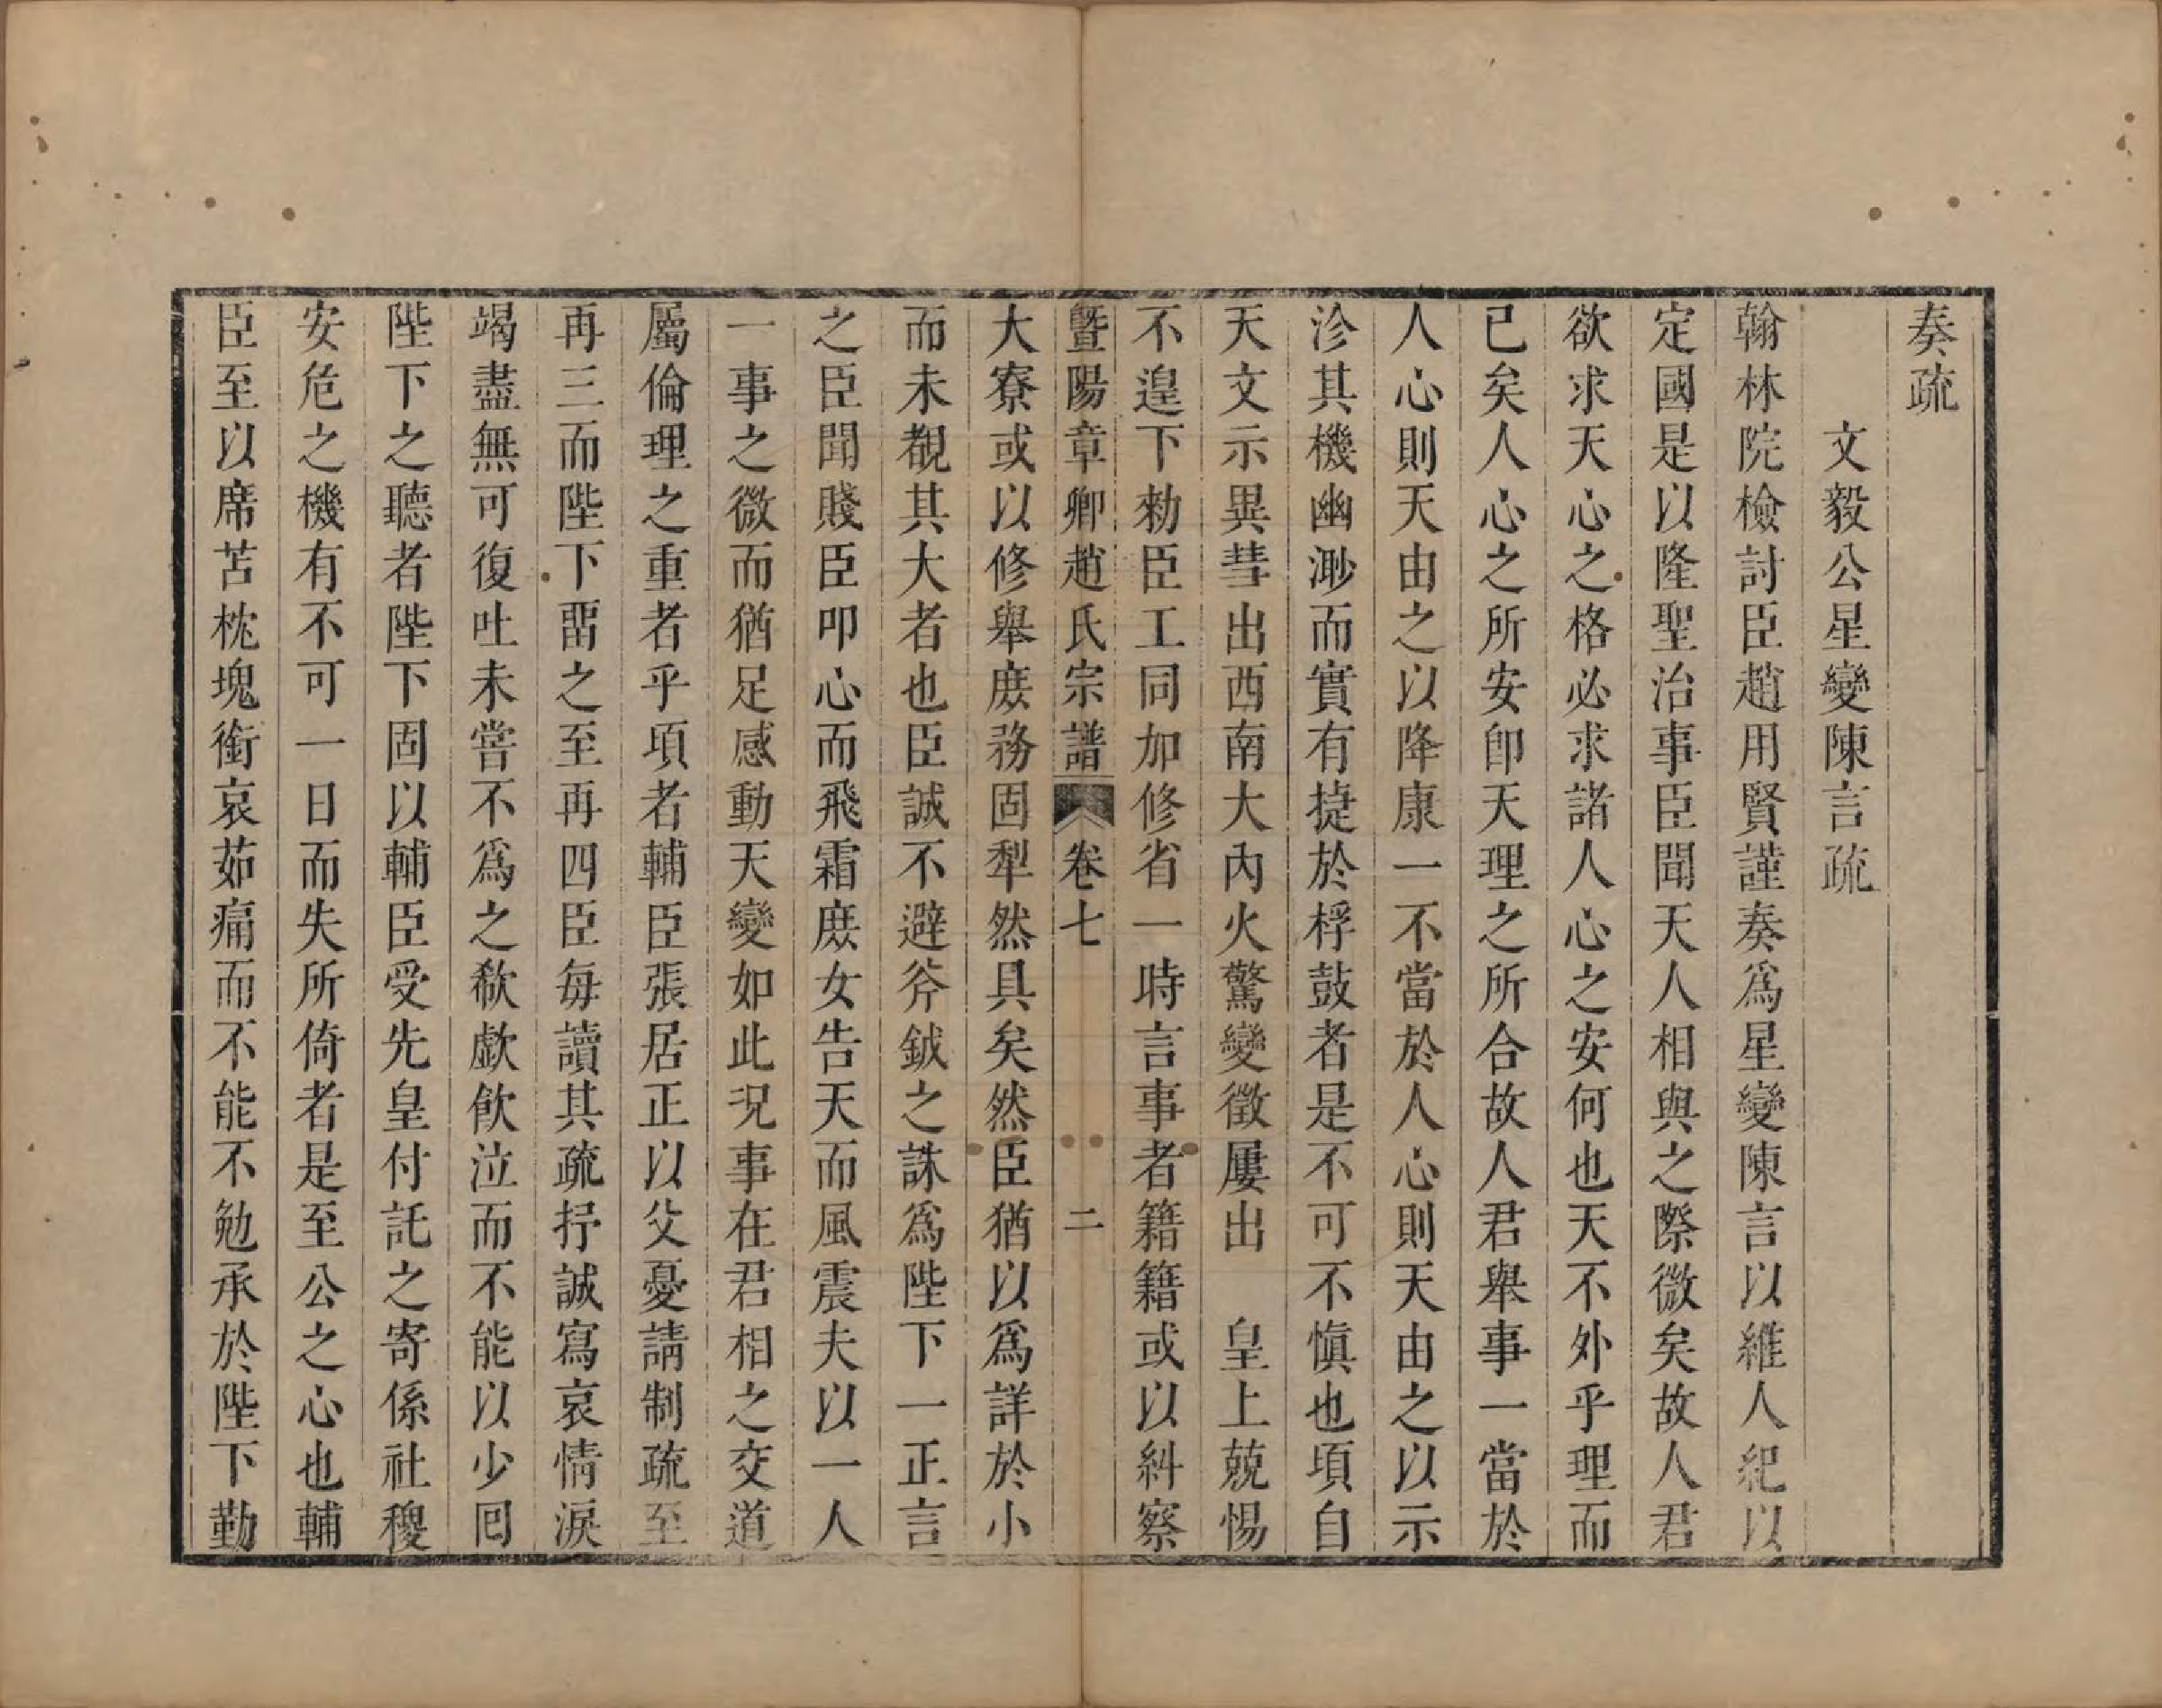 奏疏
文毅公星變陳言疏
翰林院檢討臣趙用賢謹奏爲星變陳言以維人紀以
定國是以隆聖治事臣聞天人相與之際微矣故人君
欲求天心之格必求諸人心之安何也天不外乎理而
已矣人心之所安卽天理之所合故人君舉事一當於
人心則天由之以降康一不當於人心則天由之以示
沴其機幽渺而實有捷於桴鼓者是不可不慎也項自
天文示異彗出西南大內火驚變徵屢出　皇上兢惕
不遑下勑臣工同加修省一時言事者籍籍或以糾察
暨陽章卿趙氏宗譜　卷七　二
大寮或以修舉庶務固犁然具矣然臣猶以爲詳於小
而未覩其大者也臣誠不避斧鉞之誅爲陛下一正言
之臣聞賤臣叩心而飛霜庶女告天而風震夫以一人
一事之微而猶足感動天變如此況事在君相之交道
屬倫理之重者乎項者輔臣張居正以父憂請制疏至
再三而陛下畱之至再四臣每讀其疏抒誠寫哀情淚
竭盡無可復吐未嘗不爲之欷歔飲泣而不能以少囘
陛下之聽者陛下固以輔臣受先皇付託之寄係社稷
安危之機有不可一日而失所倚者是至公之心也輔
臣至以席苫枕塊銜哀茹痛而不能不勉承於陛下勤